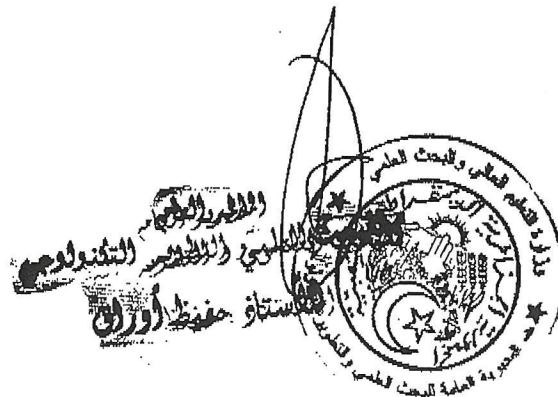 المدير العام
للبحث العلمي والتطوير التكنولوجي
الأستاذ حفيظ أوراق
وزارة التعليم العالي والبحث العلمي
المديرية العامة للبحث العلمي والتطوير